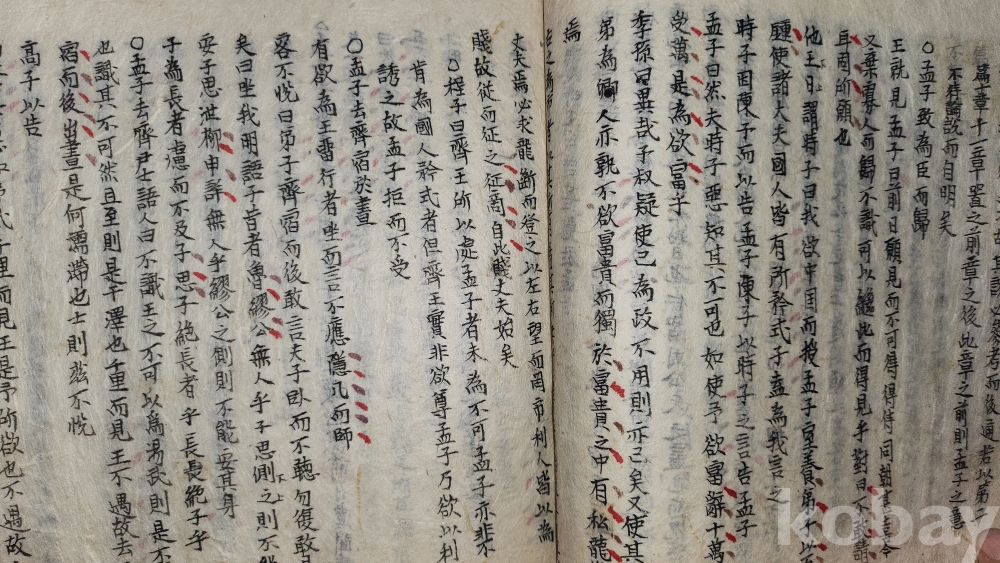 篇士章十一章置之前章之後此章之前則孟子之意
不待論說而自明矣
○孟子致為臣而歸
王就見孟子曰前日願見而不可得得侍同朝甚喜今
又棄寡人而歸不識可以繼此而得見乎對曰不敢請
耳固所願也
他王日謂時子曰我欲中国而授孟子室養弟子以
腫使諸大夫國人皆有所矜式子盍為我言之
時子因陳子而以告孟子陳子以時子之言告孟子
孟子曰然夫時子惡知其不可也如使予欲富辭十萬
受萬是為欲富乎
季孫曰異哉子叔疑使己為政不用則亦已矣又使其
弟為卿人亦孰不欲富貴而獨於富貴之中有私龍
焉
丈夫焉必求龍斷而登之以左右望而罔市利人皆以為
賤故從而征之征商自此賤丈夫始矣
○程子曰齊王所以處孟子者未為不可孟子亦非不
肯為國人矜式者但齊王實非欲尊孟子乃欲以利
誘之故孟子拒而不受
○孟子去齊宿於晝
有欲為王留行者坐而言不應隱几而卧
客不悅曰弟子齊宿而後敢言夫子卧而不聽勿復敢
矣曰坐我明語子昔者魯繆公無人乎子思側之則不能
安子思泄柳申詳無人乎繆公之側則不能安其身
子為長者慮而不及子思子絶長者乎長長絶子乎
○孟子去齊尹士語人曰不識王之不可以為湯武則是不
也識其不可然且至則是干澤也千里而見王不遇故去
宿而後出晝是何濡滯也士則玆不悅
高子以告